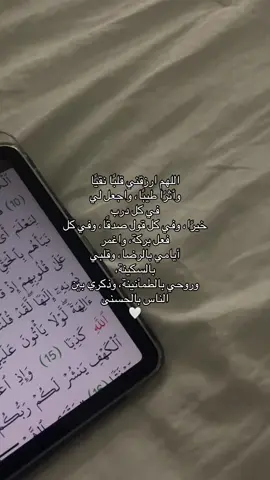 اللهم ارزقني قلبًا نقيًا
وأثرًا طيبًا، واجعل لي
في كل درب
خيرًا، وفي كل قول صدقًا، وفي كل
فعل بركة، واغمر
أيامي بالرضا، وقلبي
بالسكينة،
وروحي بالطمأنينة، وذكري بين
الناس بالحسنى
(10)
عَلَىٰ قُلُوبِهِمْ إِذْ
لَّوْلَا يَأْتُونَ عَلَيْهِم
كَذِبًا (15) وَإِذِ
الْكَهْفِ يَنشُرْ لَكُمْ رَبُّكُم